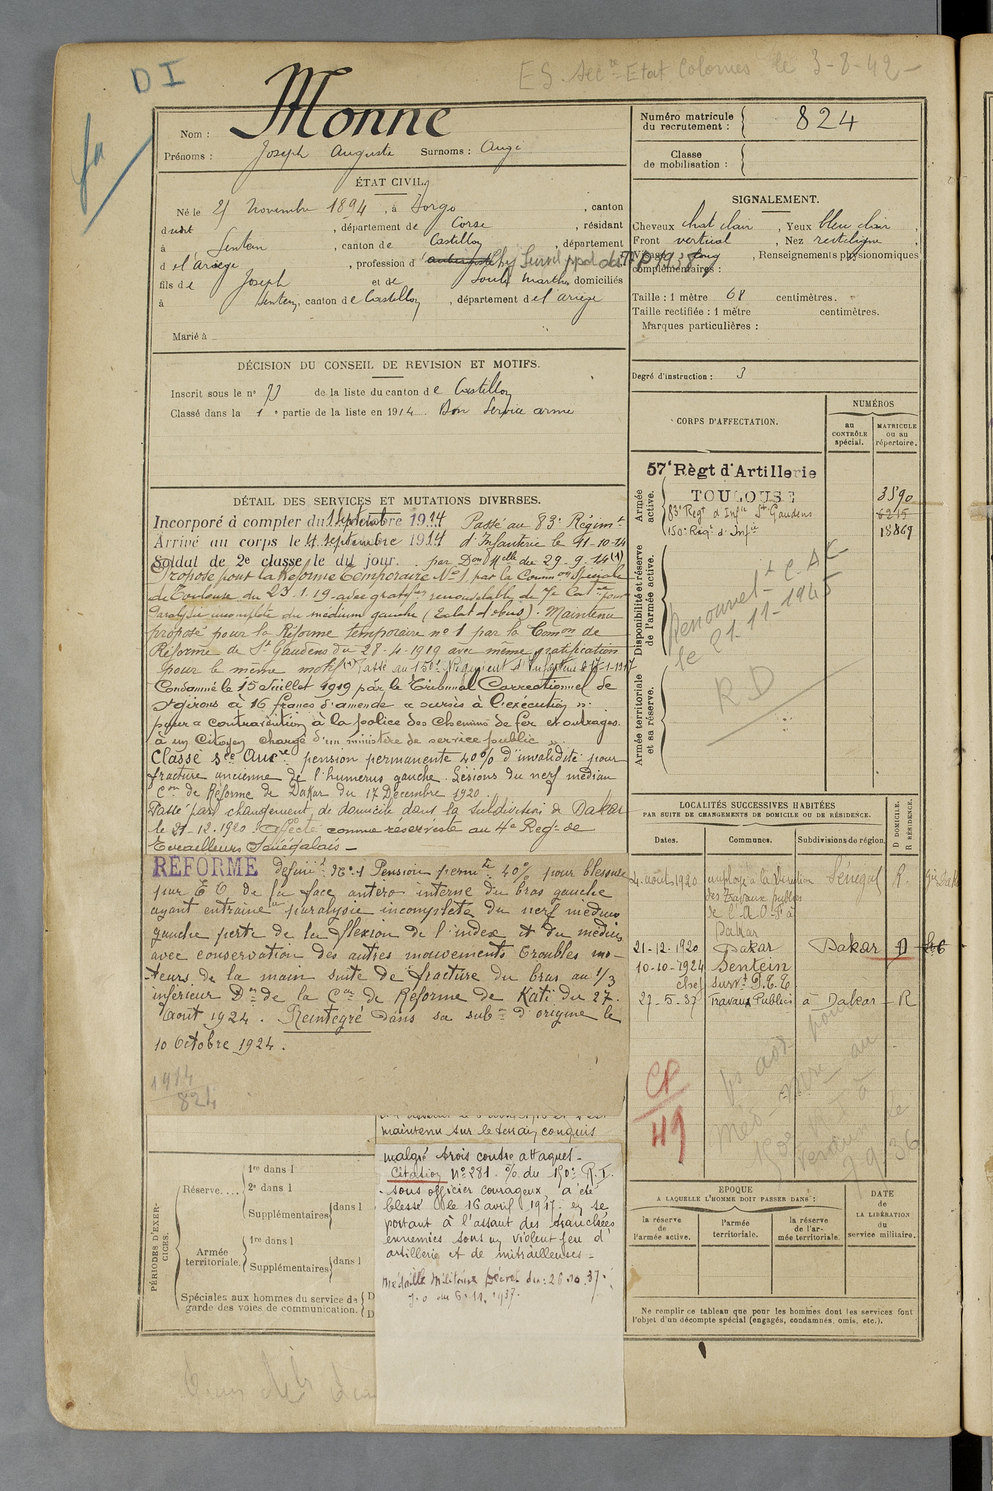 D I
ES. Sec. Etat Colonies le 3-8-42
Nom : Monne
Prénoms : Joseph Auguste Surnoms : Ange
ÉTAT CIVIL.
Né le 21 Novembre 1894, à, canton
dudit, département de Corse, résidant
à Sentein, canton de Castillon, département
d el'ariège, profession d
fils de Joseph et de Marthe domiciliés
à Sentein, canton de Castillon, département d el'ariège
Marié à
DÉCISION DU CONSEIL DE REVISION ET MOTIFS.
Inscrit sous le n° 77 de la liste du canton de Castillon
Classé dans la 1e partie de la liste en 1914. Bon Service armé
DÉTAIL DES SERVICES ET MUTATIONS DIVERSES.
Incorporé à compter du septembre 1914 Passé au 83e Régimt
Arrivé au corps le septembre 1914 d'Infanterie le 11-10-14
Soldat de 2e classe le dit jour. par Don Melle du 29-9-14 (1)
Proposé pour la Réforme temporaire N° 1 par la Common Spéciale
de Toulouse du 23.1.19 avec gratifon renouvelable de 7e Catie pour
Paralysie incomplète du médian gauche (Eclat d'obus). Maintenu
proposé pour la Réforme temporaire n° 1 par la Comon de
Réforme de St Gaudens du 28-4-1919 avec même gratification
pour le même motif. (1) Passé au 150e Régiment d'Infanterie le
Condamné le 15 Juillet 1919 par le Tribunal Correctionnel de
St girons à 16 francs d'amende " sursis à l'exécution ".
pour " contravention à la police des Chemins de fer et outrages
à un Citoyen chargé d'un ministère de service public ".
Classé sce Auxre pension permanente 40% d'invalidité pour
fracture ancienne de l'humerus gauche. Lésions du nerf médian
Con de Réforme de Dakar du 17 Décembre 1920.
Passé par changement de domicile dans la subdivision de Dakar
le 21-12-1920. Affecté comme réserviste au 4e Regt de
Tirailleurs Sénégalais —
RÉFORMÉ définit N° 1 Pension permte 40% pour blessure
par E O de la face antero interne du bras gauche
ayant entrainé paralysie incomplète du nerf médian
gauche perte de la flexion de l'index et du médius
avec conservation des autres mouvements troubles mo-
teurs de la main suite de fracture du bras au 1/3
inférieur Don de la Con de Réforme de Kati du 27.
Août 1924. Réintégré dans sa subon d'origine le
10 Octobre 1924.
1914
824
maintenu sur le terrain conquis
malgré trois contre attaques —
Citation N° 281 % du 150e R.I.
Sous officier courageux, a été
blessé le 16 avril 1917 en se
portant à l'assaut des tranchées
ennemies sous un violent feu d'
artillerie et de mitrailleuses —
Médaille Militaire Décret du : 26.10.37.
J.O. du 5.11.1937.
PÉRIODES D'EXERCICES.
Réserve....
1re dans l
2e dans l
Supplémentaires dans l
Armée territoriale.
1re dans l
Supplémentaires dans l
Spéciales aux hommes du service de
garde des voies de communication.
Numéro matricule du recrutement : 824
Classe de mobilisation :
SIGNALEMENT.
Cheveux chat clair, Yeux bleu clair,
Front vertical, Nez rectiligne,
Visage long, Renseignements physionomiques
complémentaires :
Taille : 1 mètre 68 centimètres.
Taille rectifiée : 1 mètre centimètres.
Marques particulières :
Degré d'instruction : 3
CORPS D'AFFECTATION.
NUMÉROS
au CONTRÔLE spécial.
MATRICULE ou au répertoire.
Armée active.
57e Règt d'Artillerie
TOULOUSE 3590
83e Regt d'Infie St Gaudens 6215
150e Regt d'Infie 18869
Disponibilité et réserve de l'armée active.
Renouvelt C.A.C
le 21-11-1945
Armée territoriale et sa réserve.
R.D
LOCALITÉS SUCCESSIVES HABITÉES
PAR SUITE DE CHANGEMENTS DE DOMICILE OU DE RÉSIDENCE.
Dates. Communes. Subdivisions de région. D DOMICILE. R RÉSIDENCE.
août 1920 employé à la Direction Sénégal R
des Travaux publics
de l'A O F à
Dakar
21-12-1920 Dakar Dakar D
10-10-1924 Sentein
27-5-37 Travaux Publics à Dakar R
CP
49
EPOQUE
A LAQUELLE L'HOMME DOIT PASSER DANS :
la réserve de l'armée active.
l'armée territoriale.
la réserve de l'armée territoriale.
DATE de LA LIBÉRATION du service militaire.
Ne remplir ce tableau que pour les hommes dont les services font
l'objet d'un décompte spécial (engagés, condamnés, omis, etc.).